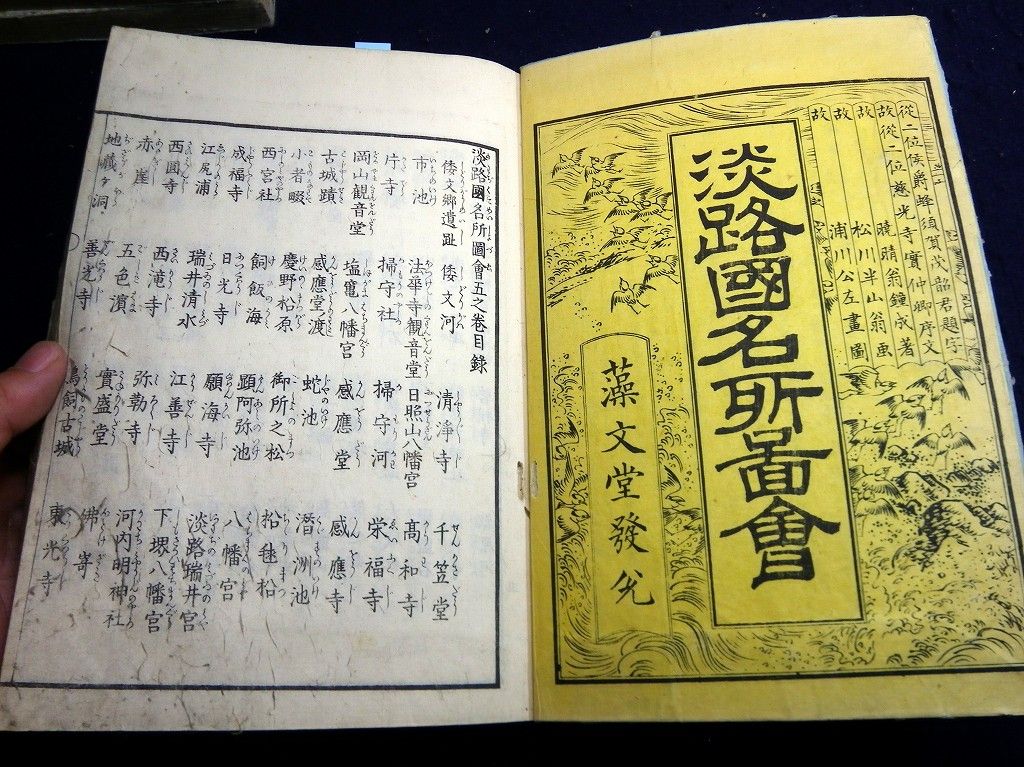 從二位侯爵蜂須賀茂韶君題字
故從二位慈光寺實仲卿序文
故 曉晴翁鐘成著
故 松川半山翁画
浦川公左畫圖
淡路國名所圖會
藻文堂發兌
淡路國名所圖會五之卷目錄
倭文郷遺趾 倭文河 清淨寺 千笠堂
市池 法華寺観音堂 日照山八幡宮 高和寺
庁寺 掃守社 掃守河 栄福寺
岡山観音堂 塩竃八幡宮 感應堂 感應寺
古城蹟 感應堂渡 蛇池 潛渕池
小者畷 慶野松原 御所之松 松毬松
西宮社 飼飯海 顕阿弥池 八幡宮
成福寺 日光寺 願海寺 淡路瑞井宮
江尻浦 瑞井清水 江善寺 下堺八幡宮
西圓寺 西滝寺 弥勒寺 河内明神社
赤崖 五色濵 實盛堂 佛㟢
地蔵ヶ洞 善光寺 鳥飼古城 東光寺